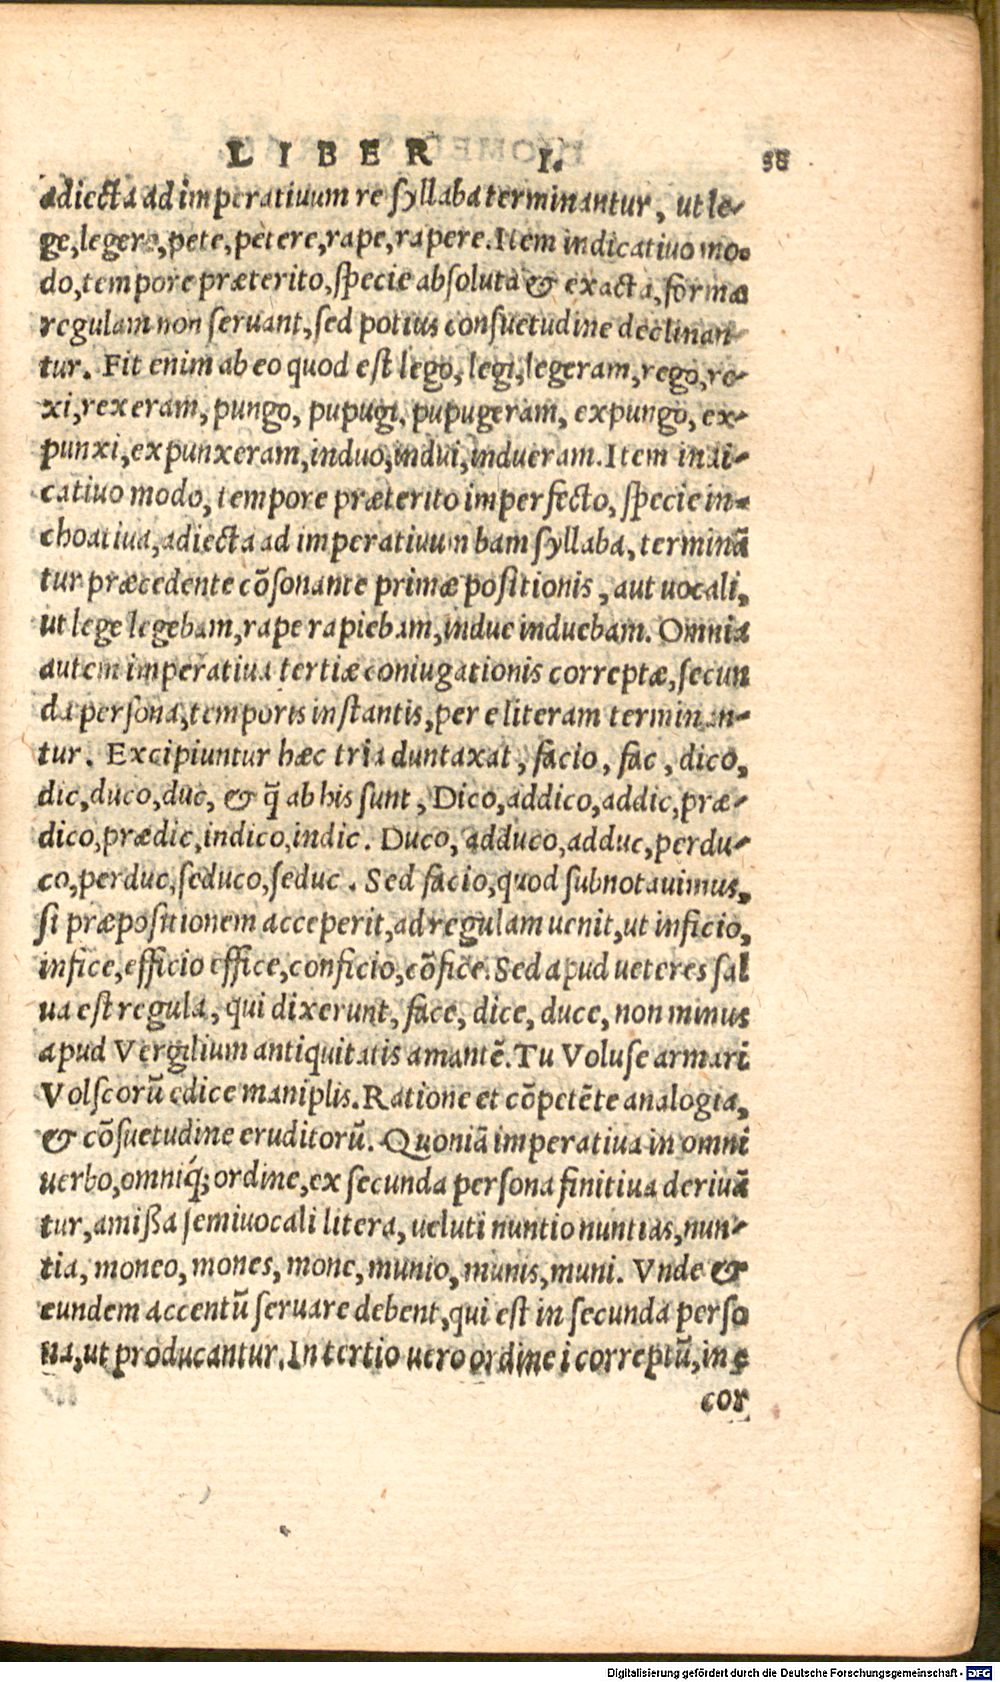 LIBER I. 38
adiecta ad imperatiuum re syllaba terminantur, ut le-
ge, legere, pete, petere, rape, rapere. Item indicatiuo mo-
do, tempore præterito, specie absoluta & exacta, formæ
regulam non seruant, sed potius consuetudine declinan-
tur. Fit enim ab eo quod est lego, legi, legeram, rego, re-
xi, rexeram, pungo, pupugi, pupugeram, expungo, ex-
punxi, expunxeram, induo, indui, indueram. Item indi-
catiuo modo, tempore præterito imperfecto, specie in-
choatiua, adiecta ad imperatiuum bam syllaba, terminã
tur præcedente cõsonante primæ positionis, aut uocali,
ut lege legebam, rape rapiebam, indue induebam. Omnia
autem imperatiua tertiæ coniugationis correptæ, secun
da persona, temporis instantis, per e literam terminan-
tur. Excipiuntur hæc tria duntaxat, facio, fac, dico,
dic, duco, duc, & q̃ ab his sunt, Dico, addico, addic, præ-
dico, prædic, indico, indic. Duco, adduco, adduc, perdu-
co, perduc, seduco, seduc. Sed facio, quod subnotauimus,
si præpositionem acceperit, ad regulam uenit, ut inficio,
infice, efficio effice, conficio, cõfice. Sed apud ueteres sal
ua est regula, qui dixerunt, face, dice, duce, non minus
apud Vergilium antiquitatis amantẽ. Tu Voluse armari
Volscorũ edice maniplis. Ratione et cõpetẽte analogia,
& cõsuetudine eruditorũ. Quoniã imperatiua in omni
uerbo, omniq́; ordine, ex secunda persona finitiua deriuã
tur, amißa semiuocali litera, ueluti nuntio nuntias, nun-
tia, moneo, mones, mone, munio, munis, muni. Vnde &
eundem accentũ seruare debent, qui est in secunda perso
na, ut producantur. In tertio uero ordine i correptũ, in e
cor
Digitalisierung gefördert durch die Deutsche Forschungsgemeinschaft - DFG